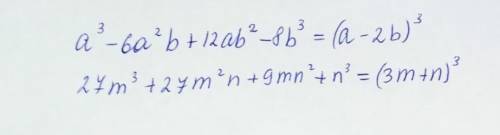 a³-6a²b+12ab²-8b³=(a-2b)³
27m³+27m²n+9mn²+n³=(3m+n)³